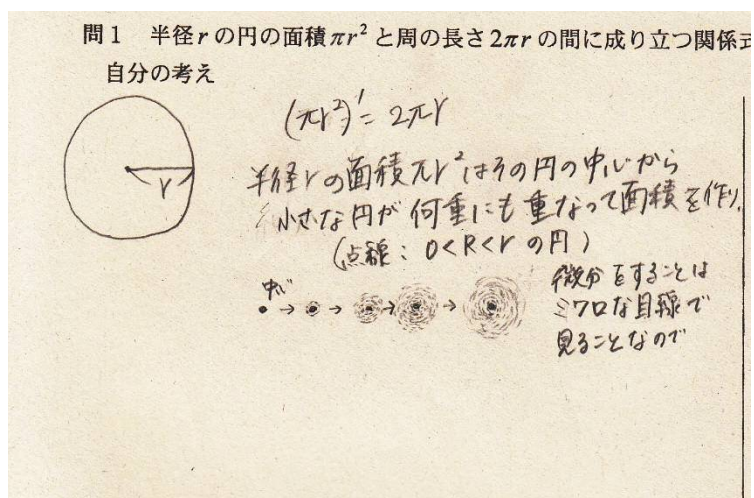 問1 半径rの円の面積πr²と周の長さ2πrの間に成り立つ関係式
自分の考え
(πr²)' = 2πr
r
半径rの面積πr²はその円の中心から
小さな円が何重にも重なって面積を作り、
(点線：0<R<rの円)
中心
→ → → →
微分をすることは
ミクロな目線で
見ることなので